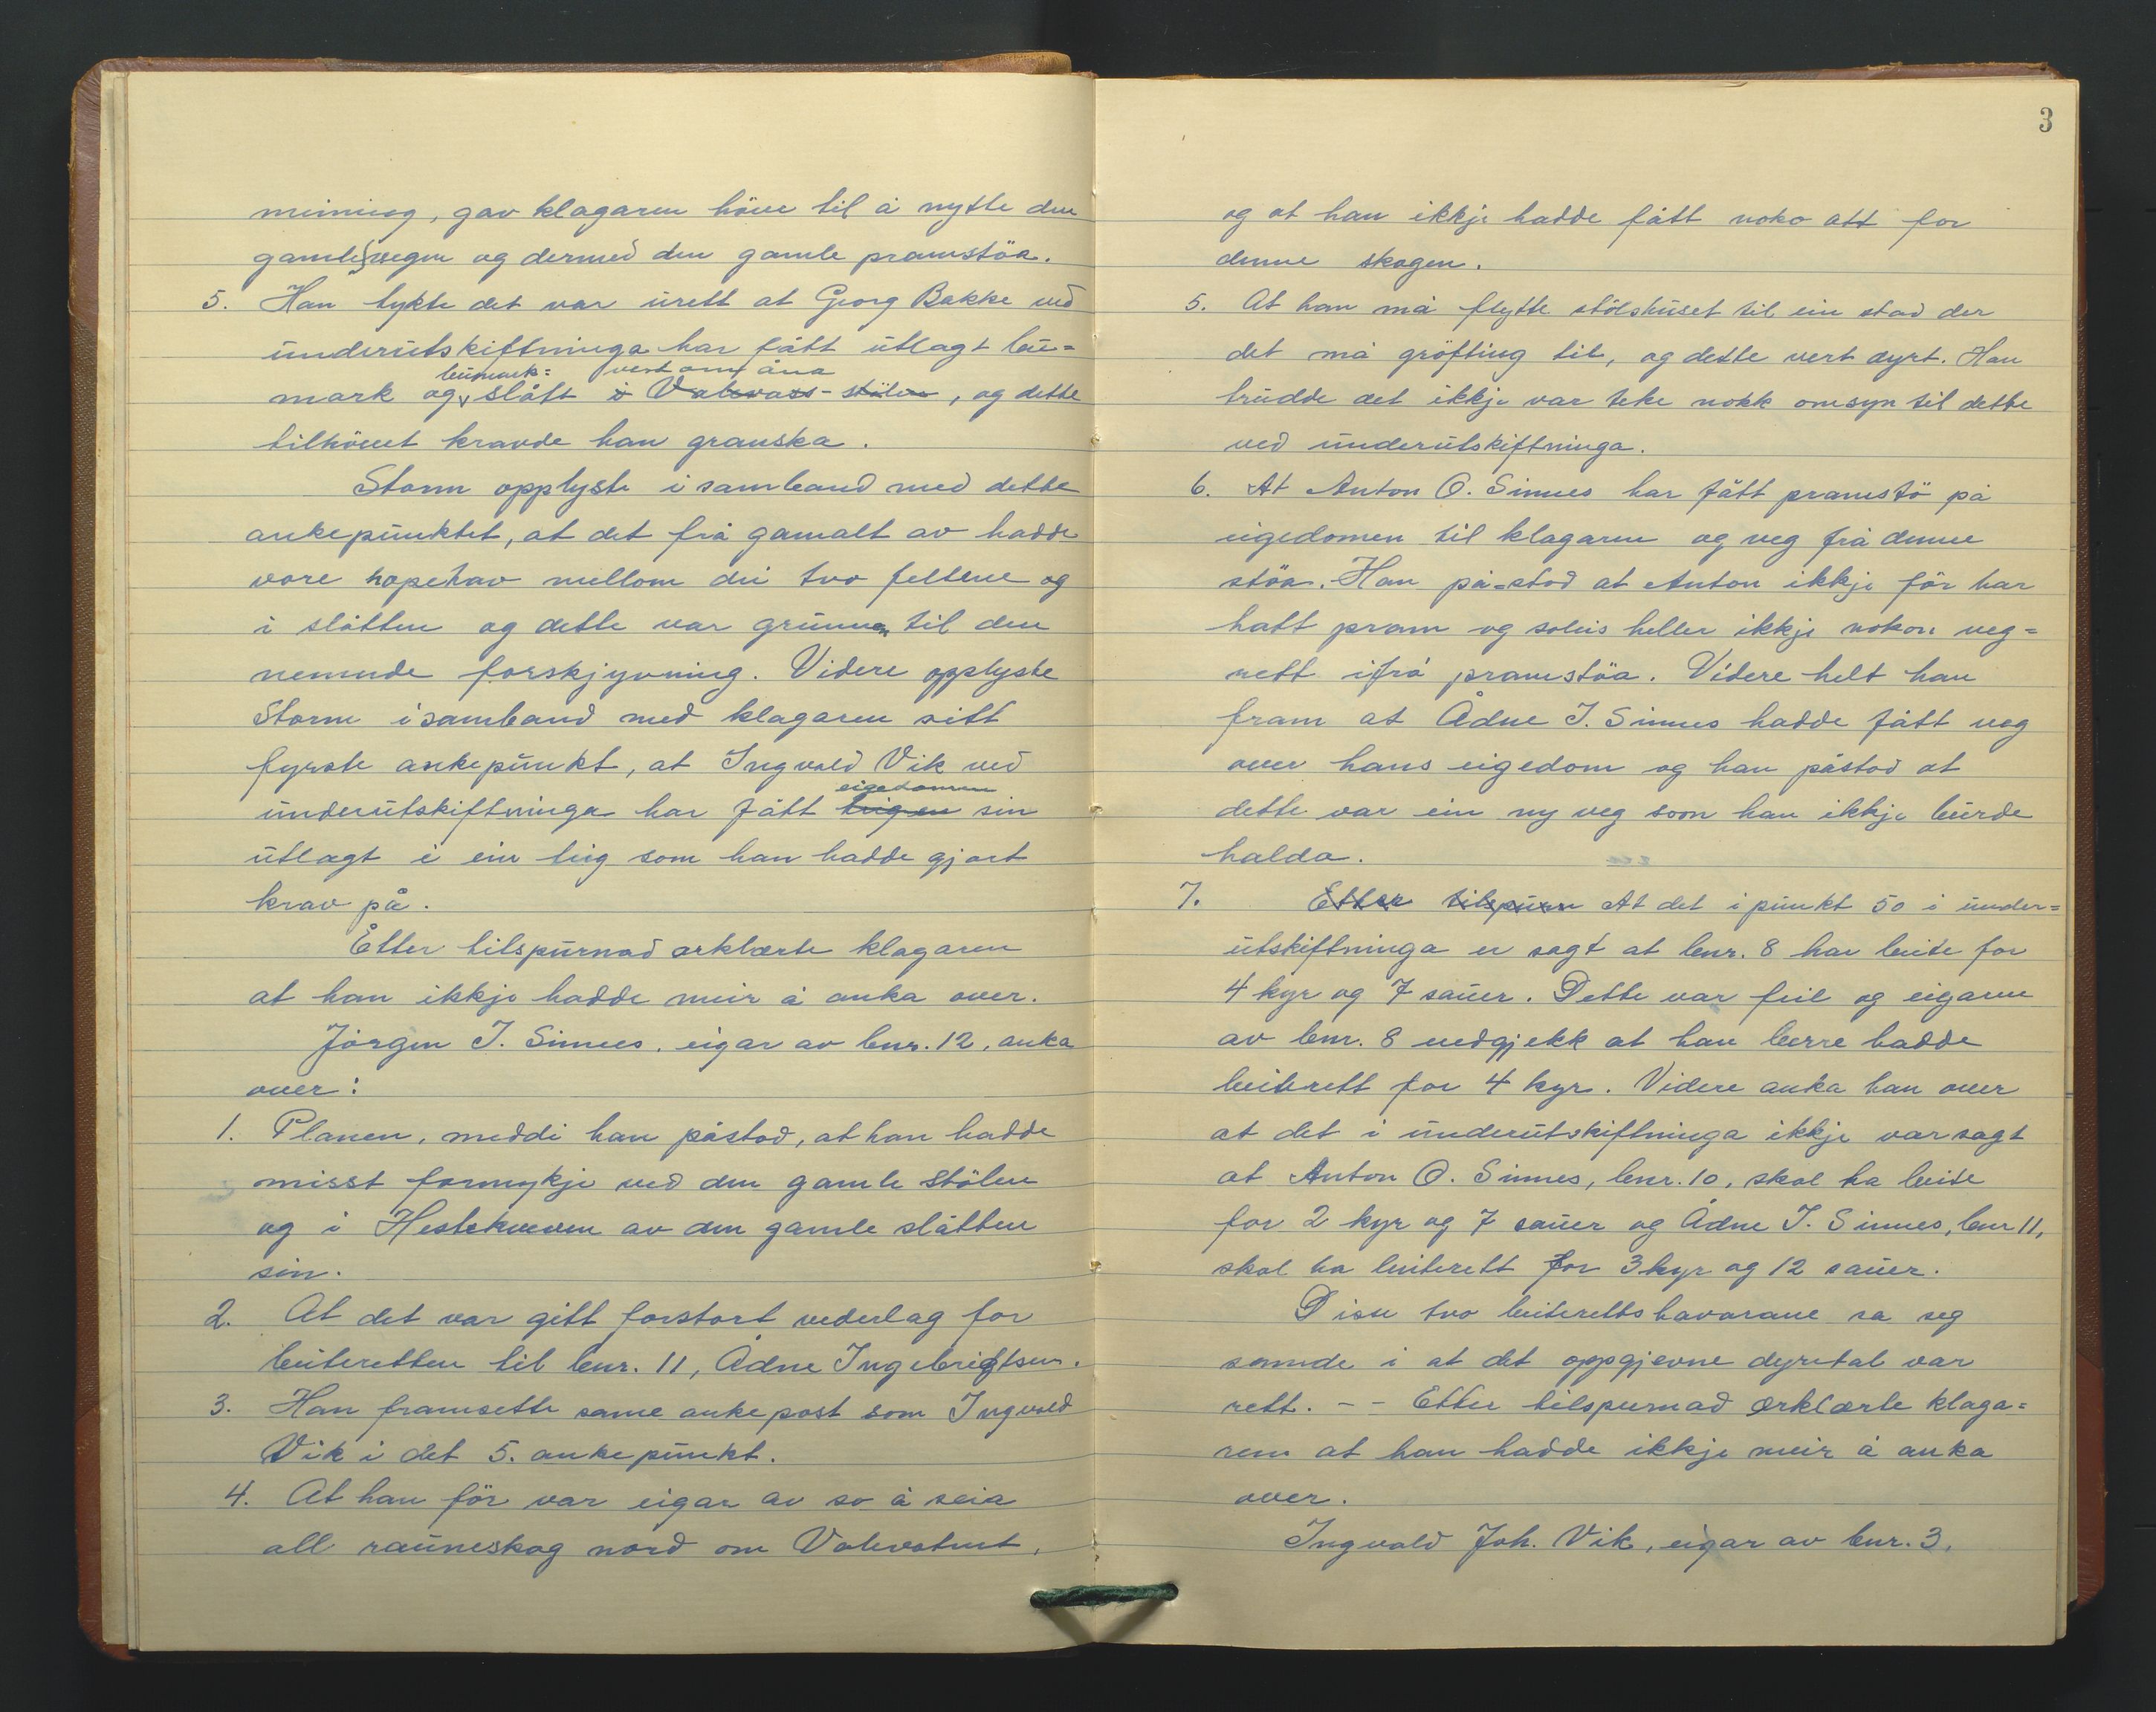 meining, gav klagaren höve til å nytte den
gamle vegen og dermed den gamle pramstöa.
5. Han tykte det var urett at Georg Bakke ved
underutskiftninga har fått utlagt bu=
bumark= vest om åna
mark og slått i Valevass-stölen, og dette
tilhövet kravde han granska.
Storm opplyste i samband med dette
ankepunktet, at det frå gamalt av hadde
vore hopehav mellom dei tvo feltene og
i slåtten og dette var grunnen til den
nemnde forskjyvning. Videre opplyste
Storm i samband med klagaren sitt
fyrste ankepunkt, at Ingvald Vik ved
eigedomen
underutskiftninga har fått teigen sin
utlagt i ein teig som han hadde gjort
krav på.
Etter tilspurnad erklærte klagaren
at han ikkje hadde meir å anka over.
Jörgen I. Sinnes, eigar av bnr. 12, anka
over:
1. Planen, meddi han påstod, at han hadde
misst formykje ved den gamle stölen
og i Hestekveven av den gamle slåtten
sin.
2. At det var gitt forstort vederlag for
beiteretten til bnr. 11, Ådne Ingebrigtsen.
3. Han framsette same ankepost som Ingvald
Vik i det 5. ankepunkt.
4. At han för var eigar av so å seia
all rauneskog nord om Valevatnet,
3
og at han ikkje hadde fått noko att for
denne skogen.
5. At han må flytte stölshuset til ein stad der
det må gröfting til, og dette vert dyrt. Han
trudde det ikkje var teke nokk omsyn til dette
ved underutskiftninga.
6. At Anton O. Sinnes har fått pramstö på
eigedomen til klagaren og veg frå denne
stöa. Han på=stod at Anton ikkje för har
hatt pram og soleis heller ikkje nokon veg=
rett ifrå pramstöa. Videre helt han
fram at Ådne I. Sinnes hadde fått veg
over hans eigedom og han påstod at
dette var ein ny veg som han ikkje burde
halda.
7. Etter tilspurn At det i punkt 50 i under=
utskiftninga er sagt at bnr. 8 har beite for
4 kyr og 7 sauer. Dette var feil og eigaren
av bnr. 8 vedgjekk at han berre hadde
beiterett for 4 kyr. Videre anka han over
at det i underutskiftninga ikkje var sagt
at Anton O. Sinnes, bnr. 10, skal ha beite
for 2 kyr og 7 sauer og Ådne I. Sinnes, bnr 11,
skal ha beiterett for 3 kyr og 12 sauer.
Disse tvo beiterettshavarane sa seg
samde i at det oppgjevne dyretal var
rett. -- Etter tilspurnad erklærte klaga=
ren at han hadde ikkje meir å anka
over.
Ingvald Joh. Vik, eigar av bnr. 3,